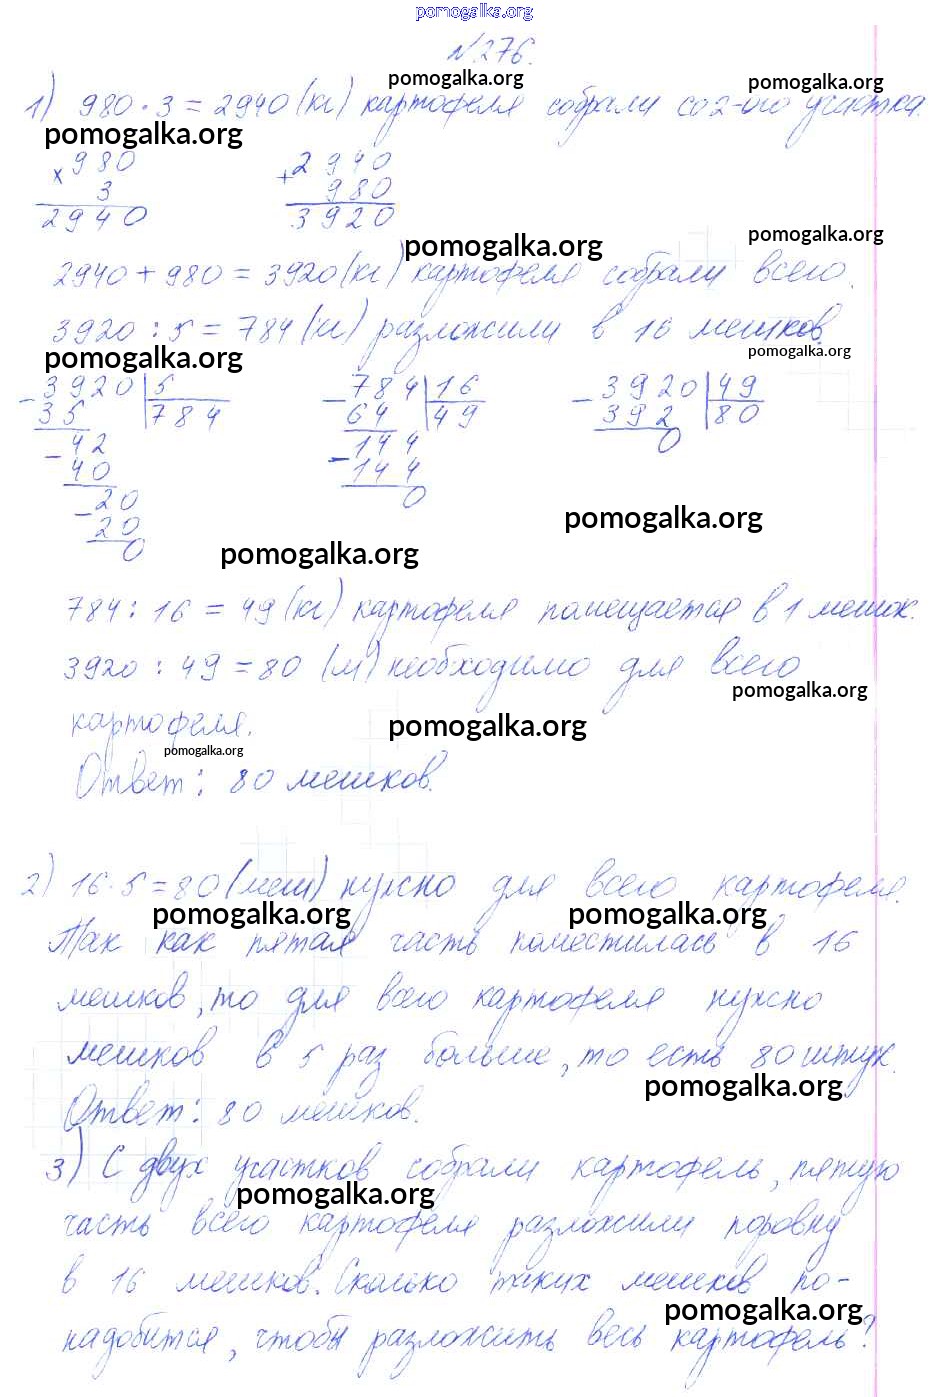 pomogalka.org
N.276.
pomogalka.org pomogalka.org
1) 980 · 3 = 2940 (кг) картофеля собрали со 2-ого участка.
pomogalka.org
× 980 + 2940
3 980
2940 3920
pomogalka.org pomogalka.org
2940 + 980 = 3920 (кг) картофеля собрали всего.
3920 : 5 = 784 (кг) разложили в 16 мешков.
pomogalka.org pomogalka.org
- 3920 | 5 - 784 | 16 - 3920 | 49
35 | 784 64 | 49 392 | 80
- 42 - 144 0
40 144
- 20 0
20
0
pomogalka.org
pomogalka.org
784 : 16 = 49 (кг) картофеля помещается в 1 мешок.
3920 : 49 = 80 (м) необходимо для всего
pomogalka.org
картофеля.
pomogalka.org
pomogalka.org
Ответ: 80 мешков.
2) 16 · 5 = 80 (меш) нужно для всего картофеля.
pomogalka.org pomogalka.org
Так как пятая часть поместилась в 16
мешков, то для всего картофеля нужно
мешков в 5 раз больше, то есть 80 штук.
pomogalka.org
Ответ: 80 мешков.
3) С двух участков собрали картофель, пятую
pomogalka.org
часть всего картофеля разложили поровну
в 16 мешков. Сколько таких мешков по-
pomogalka.org
надобится, чтобы разложить весь картофель?